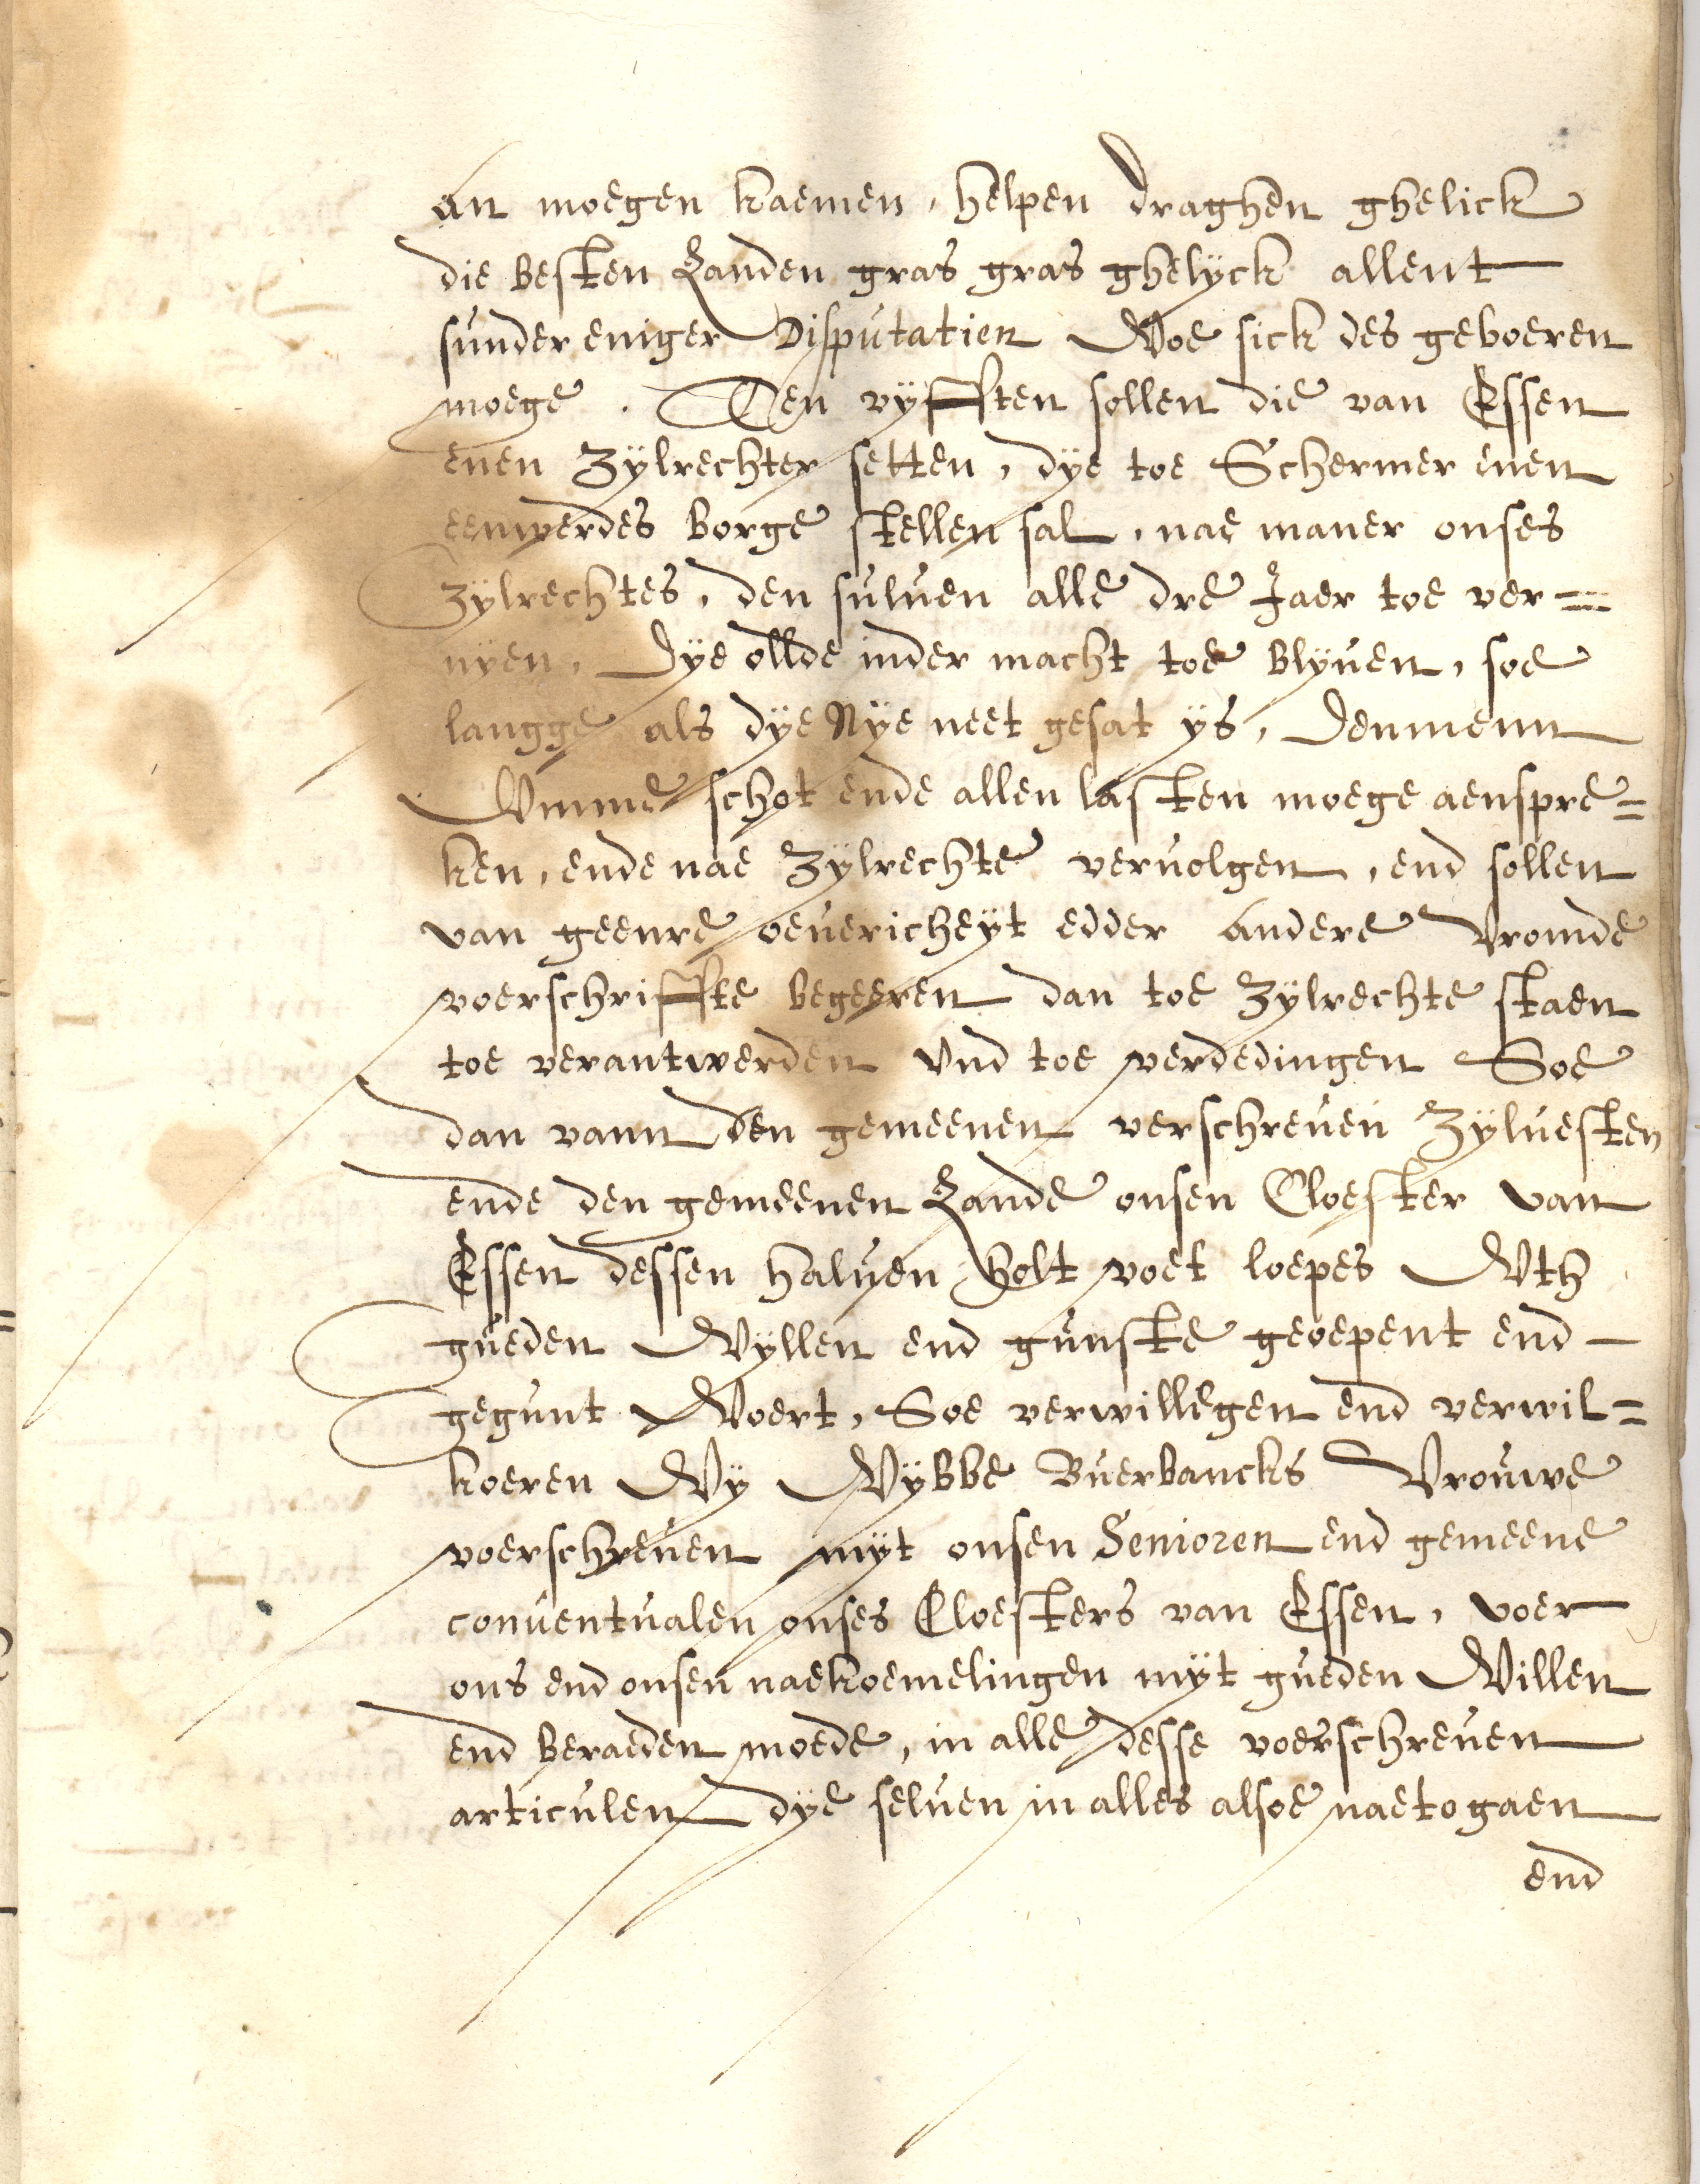 an moegen kaemen, helpen draghen ghelick
die besten Landen gras gras ghelÿck allent
sunder eniger Disputatien Woe sick des geboeren
moege. Ten vÿfften sollen die van Essen
enen Zÿlrechter setten, dÿe toe Schermer enen
eenwerdes borge stellen sal, nae maner onses
Zÿlrechtes, den suluen alle dre Jaer toe ver=
nÿen, Dÿe ollde inder macht toe blÿuen, soe
langge als dÿe Nÿe neet gesat ÿs, denmenn
Vmme schot ende allen lasten moege aenspre=
ken, ende nae Zÿlrechte veruolgen, end sollen
van geenre oeuericheÿt edder andere Vromde
voerschriffte begeeren dan toe Zÿlrechte staen
toe verantwerden Vnd toe verdedingen Soe
dan vann den gemeenen verschreuen Zÿluesten
ende den gemeenen Lande onsen Cloester van
Essen dessen haluen holt voet loepes Wth
gueden Wÿllen end gunste geoepent end
gegunt Woert, Soe verwillegen end verwil=
koeren Wÿ Wÿbbe Buerbancks Vrouwe
voerschreuen mÿt onsen Senioren end gemeene
conuentualen onses Cloesters van Essen, voer
ons end onsen naekoemelingen mÿt gueden Willen
end beraeden moede, in alle desse voerschreuen
articulen dÿe seluen in alles alsoe naeto gaen
end